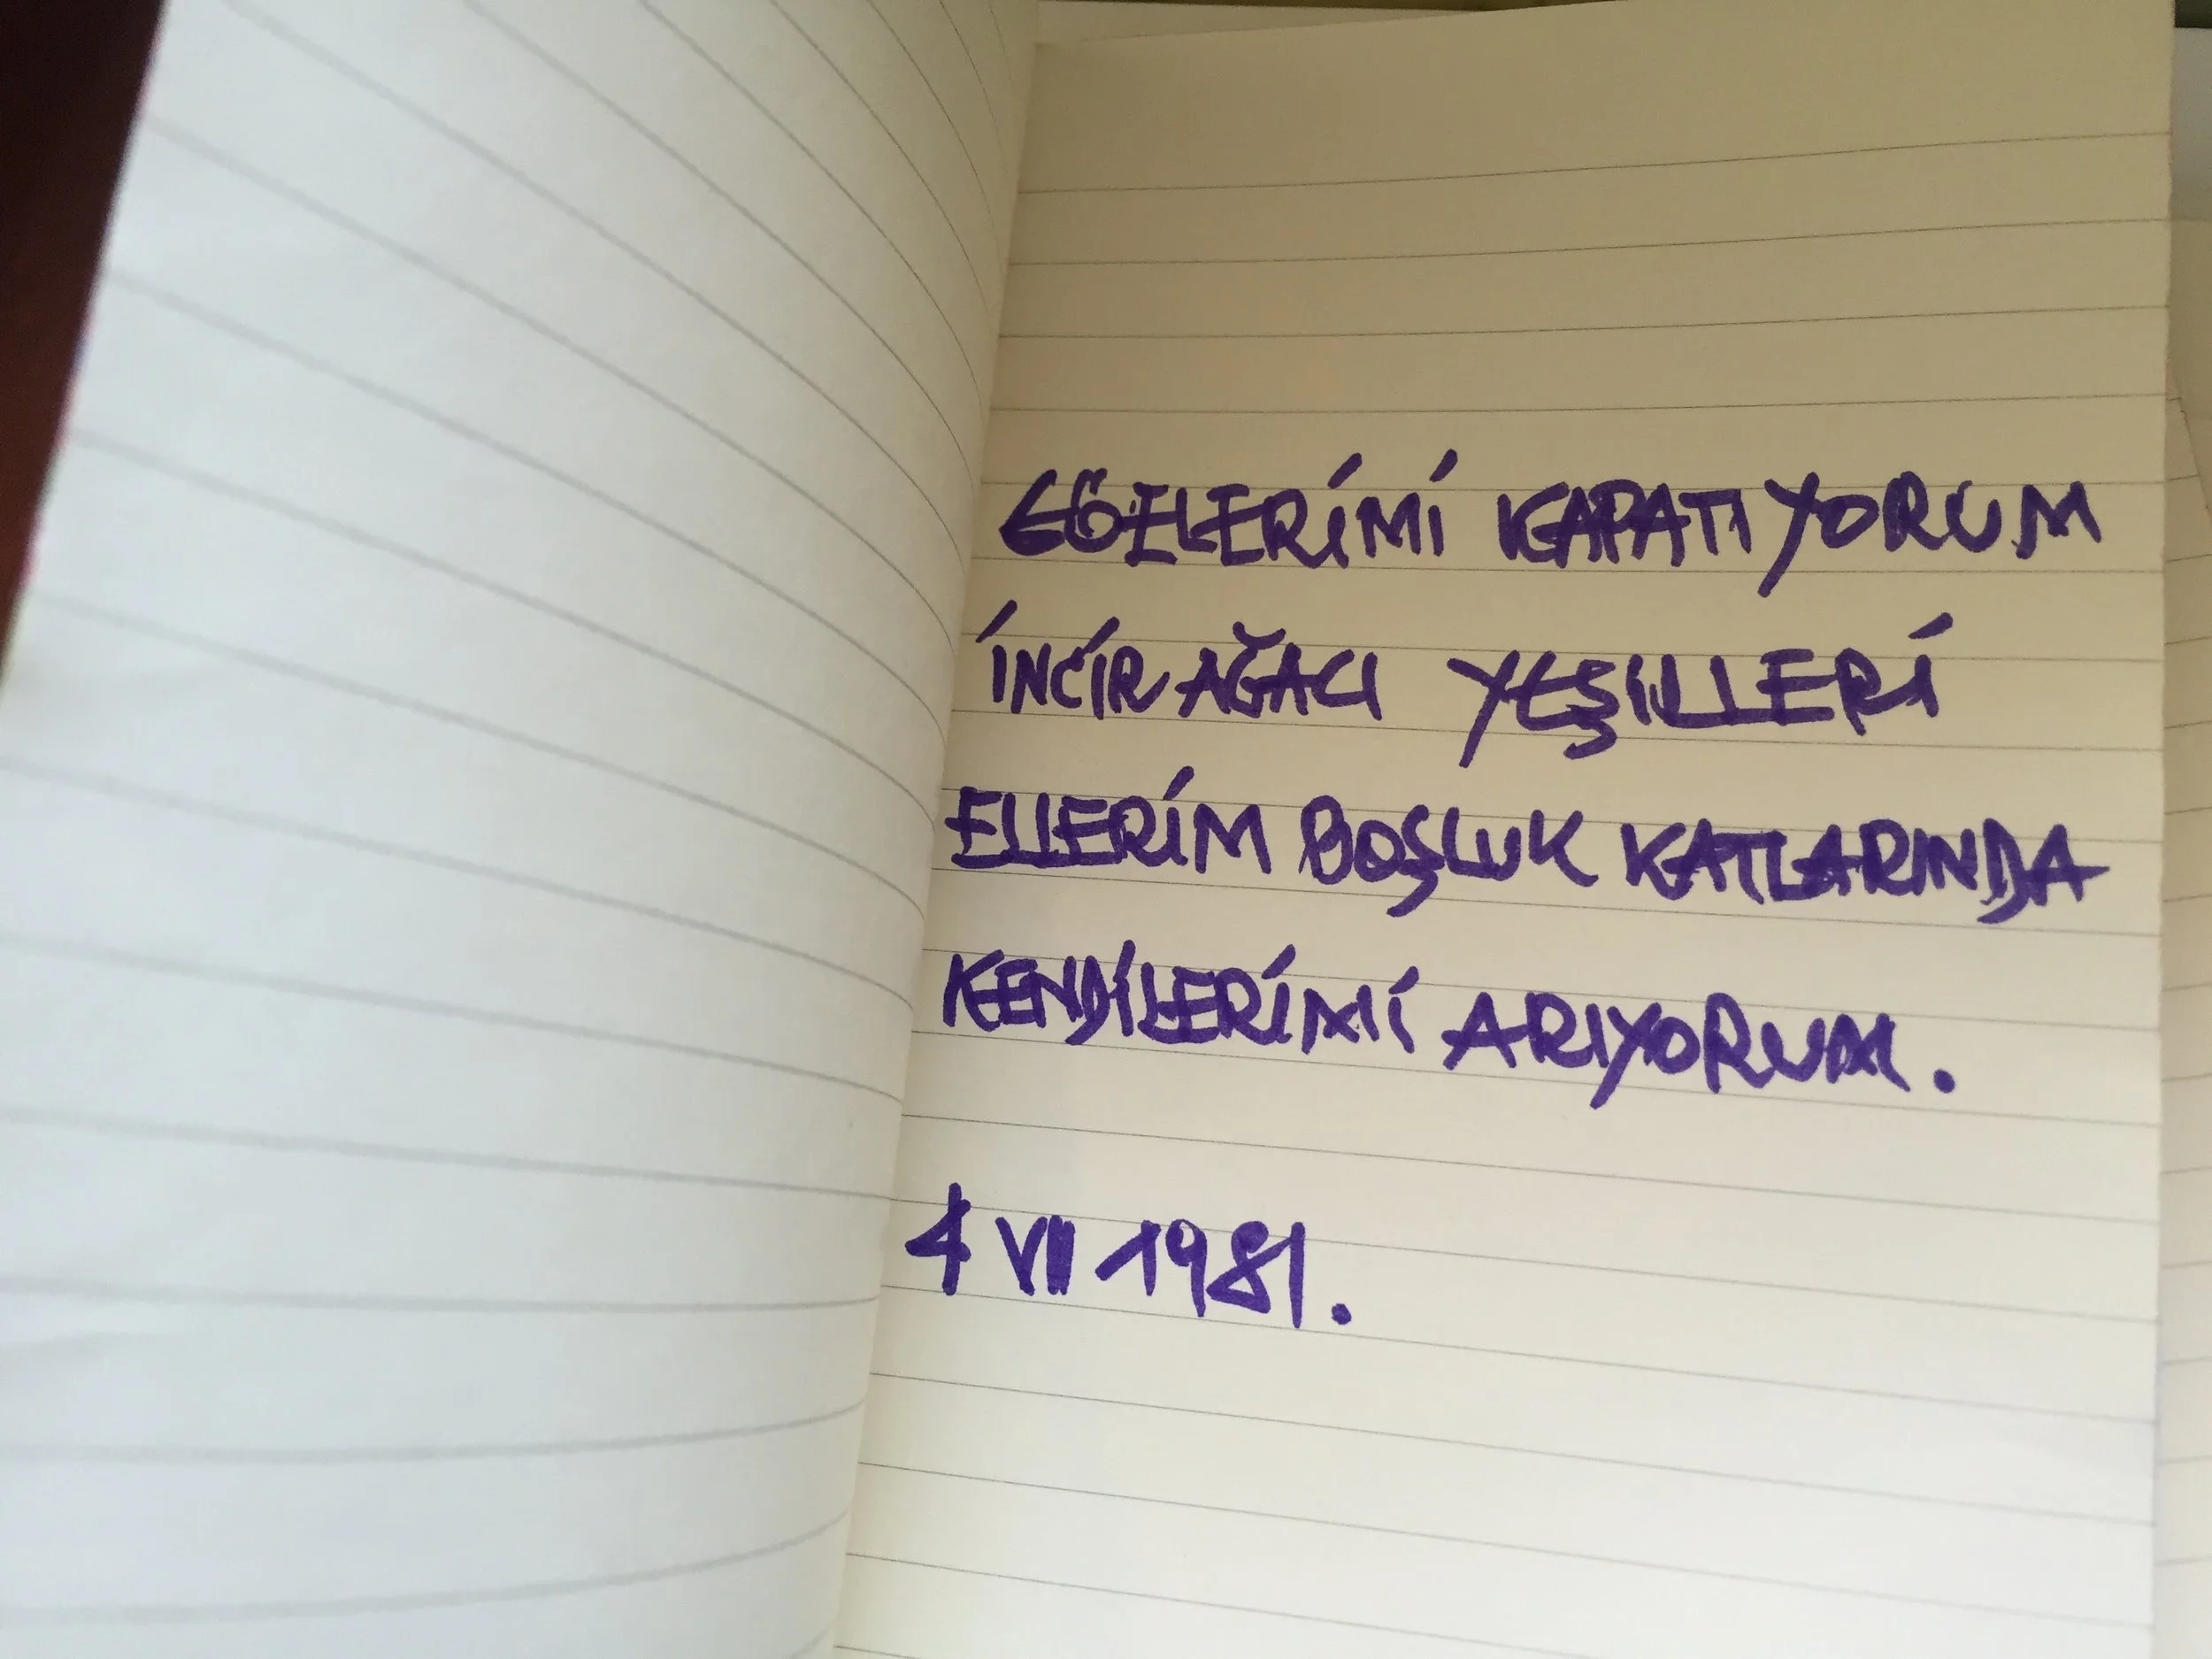 GÖZLERİMİ KAPATIYORUM
İNCİR AĞACI YEŞİLLERİ
ELLERİM BOŞLUK KATLARINDA
KENDİLERİMİ ARIYORUM.
4 VII 1981.